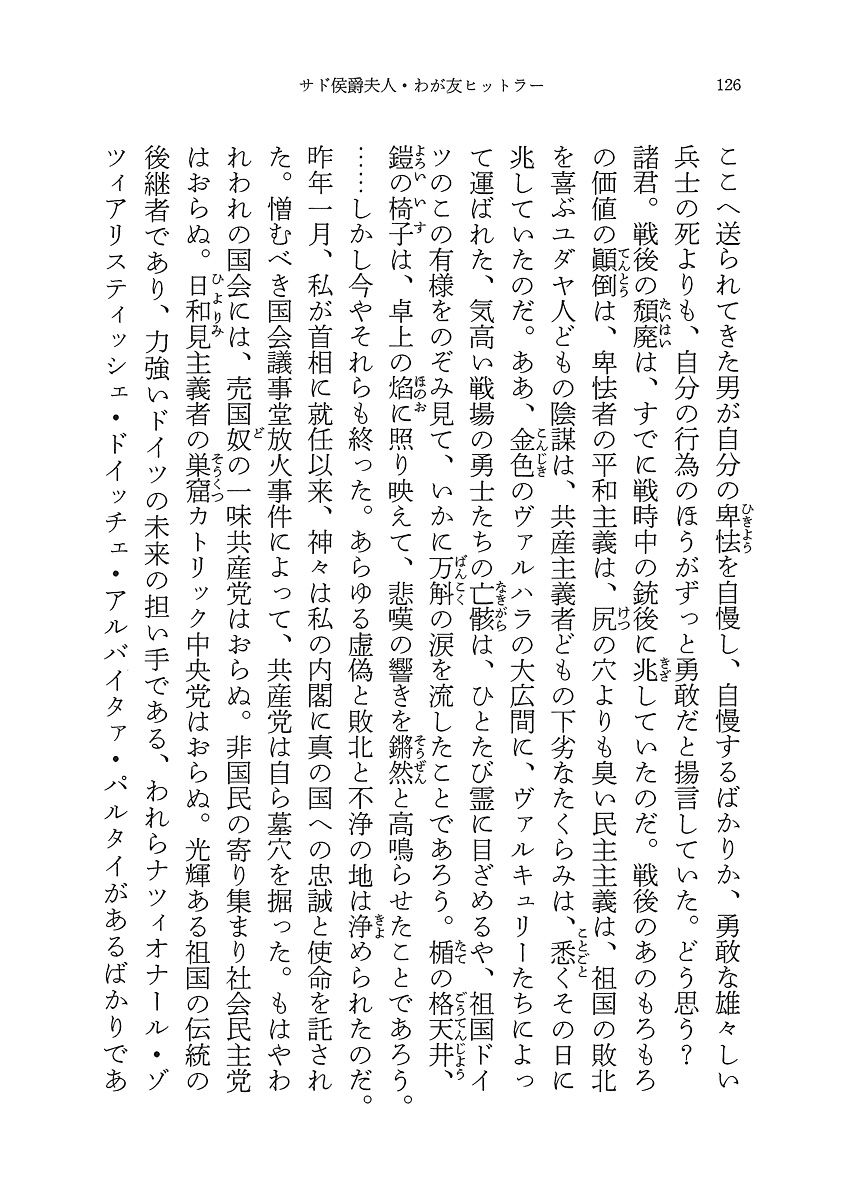 サド侯爵夫人・わが友ヒットラー
126
ここへ送られてきた男が自分の卑怯を自慢し、自慢するばかりか、勇敢な雄々しい
兵士の死よりも、自分の行為のほうがずっと勇敢だと揚言していた。どう思う?
諸君。戦後の頽廃は、すでに戦時中の銃後に兆していたのだ。戦後のあのもろもろ
の価値の顚倒は、卑怯者の平和主義は、尻の穴よりも臭い民主主義は、祖国の敗北
を喜ぶユダヤ人どもの陰謀は、共産主義者どもの下劣なたくらみは、悉くその日に
兆していたのだ。ああ、金色のヴァルハラの大広間に、ヴァルキュリーたちによっ
て運ばれた、気高い戦場の勇士たちの亡骸は、ひとたび霊に目ざめるや、祖国ドイ
ツのこの有様をのぞみ見て、いかに万斛の涙を流したことであろう。楯の格天井、
鎧の椅子は、卓上の焰に照り映えて、悲嘆の響きを鏘然と高鳴らせたことであろう。
……しかし今やそれらも終った。あらゆる虚偽と敗北と不浄の地は浄められたのだ。
昨年一月、私が首相に就任以来、神々は私の内閣に真の国への忠誠と使命を託され
た。憎むべき国会議事堂放火事件によって、共産党は自ら墓穴を掘った。もはやわ
れわれの国会には、売国奴の一味共産党はおらぬ。非国民の寄り集まり社会民主党
はおらぬ。日和見主義者の巣窟カトリック中央党はおらぬ。光輝ある祖国の伝統の
後継者であり、力強いドイツの未来の担い手である、われらナツィオナール・ゾ
ツィアリスティッシェ・ドイッチェ・アルバイタァ・パルタイがあるばかりであ